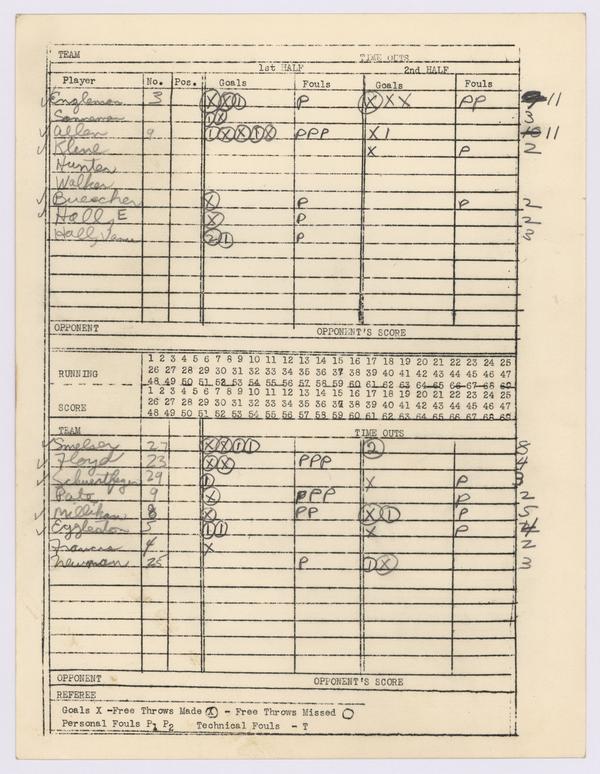 TEAM TIME OUTS
1st HALF 2nd HALF
Player No. Pos. Goals Fouls Goals Fouls
Engleman 3 X X 1 P X X X PP 9 11
Sonneman 1 X 3
Allen 9 1 X X 1 X PPP X 1 10 11
Kline X P 2
Hunter
Walker
Buescher X P P 2
Hall, E X P 2
Hall, Vane 2 1 P 3
OPPONENT OPPONENT'S SCORE
1 2 3 4 5 6 7 8 9 10 11 12 13 14 15 16 17 18 19 20 21 22 23 24 25
RUNNING 26 27 28 29 30 31 32 33 34 35 36 37 38 39 40 41 42 43 44 45 46 47
48 49 50 51 52 53 54 55 56 57 58 59 60 61 62 63 64 65 66 67 68 69
1 2 3 4 5 6 7 8 9 10 11 12 13 14 15 16 17 18 19 20 21 22 23 24 25
SCORE 26 27 28 29 30 31 32 33 34 35 36 37 38 39 40 41 42 43 44 45 46 47
48 49 50 51 52 53 54 55 56 57 58 59 60 61 62 63 64 65 66 67 68 69
TEAM TIME OUTS
Smelser 27 X X 1 1 2 8
Floyd 23 X X PPP 4
Schwertfeger 29 1 X P 3
Pato 9 X PPP P 2
Millikan 8 X PP X 1 P 5
Eggleston 5 1 1 X P 4
Francis 4 X 2
Newman 25 P 1 X 3
OPPONENT OPPONENT'S SCORE
REFEREE
Goals X -Free Throws Made X - Free Throws Missed O
Personal Fouls P1 P2 Technical Fouls - T